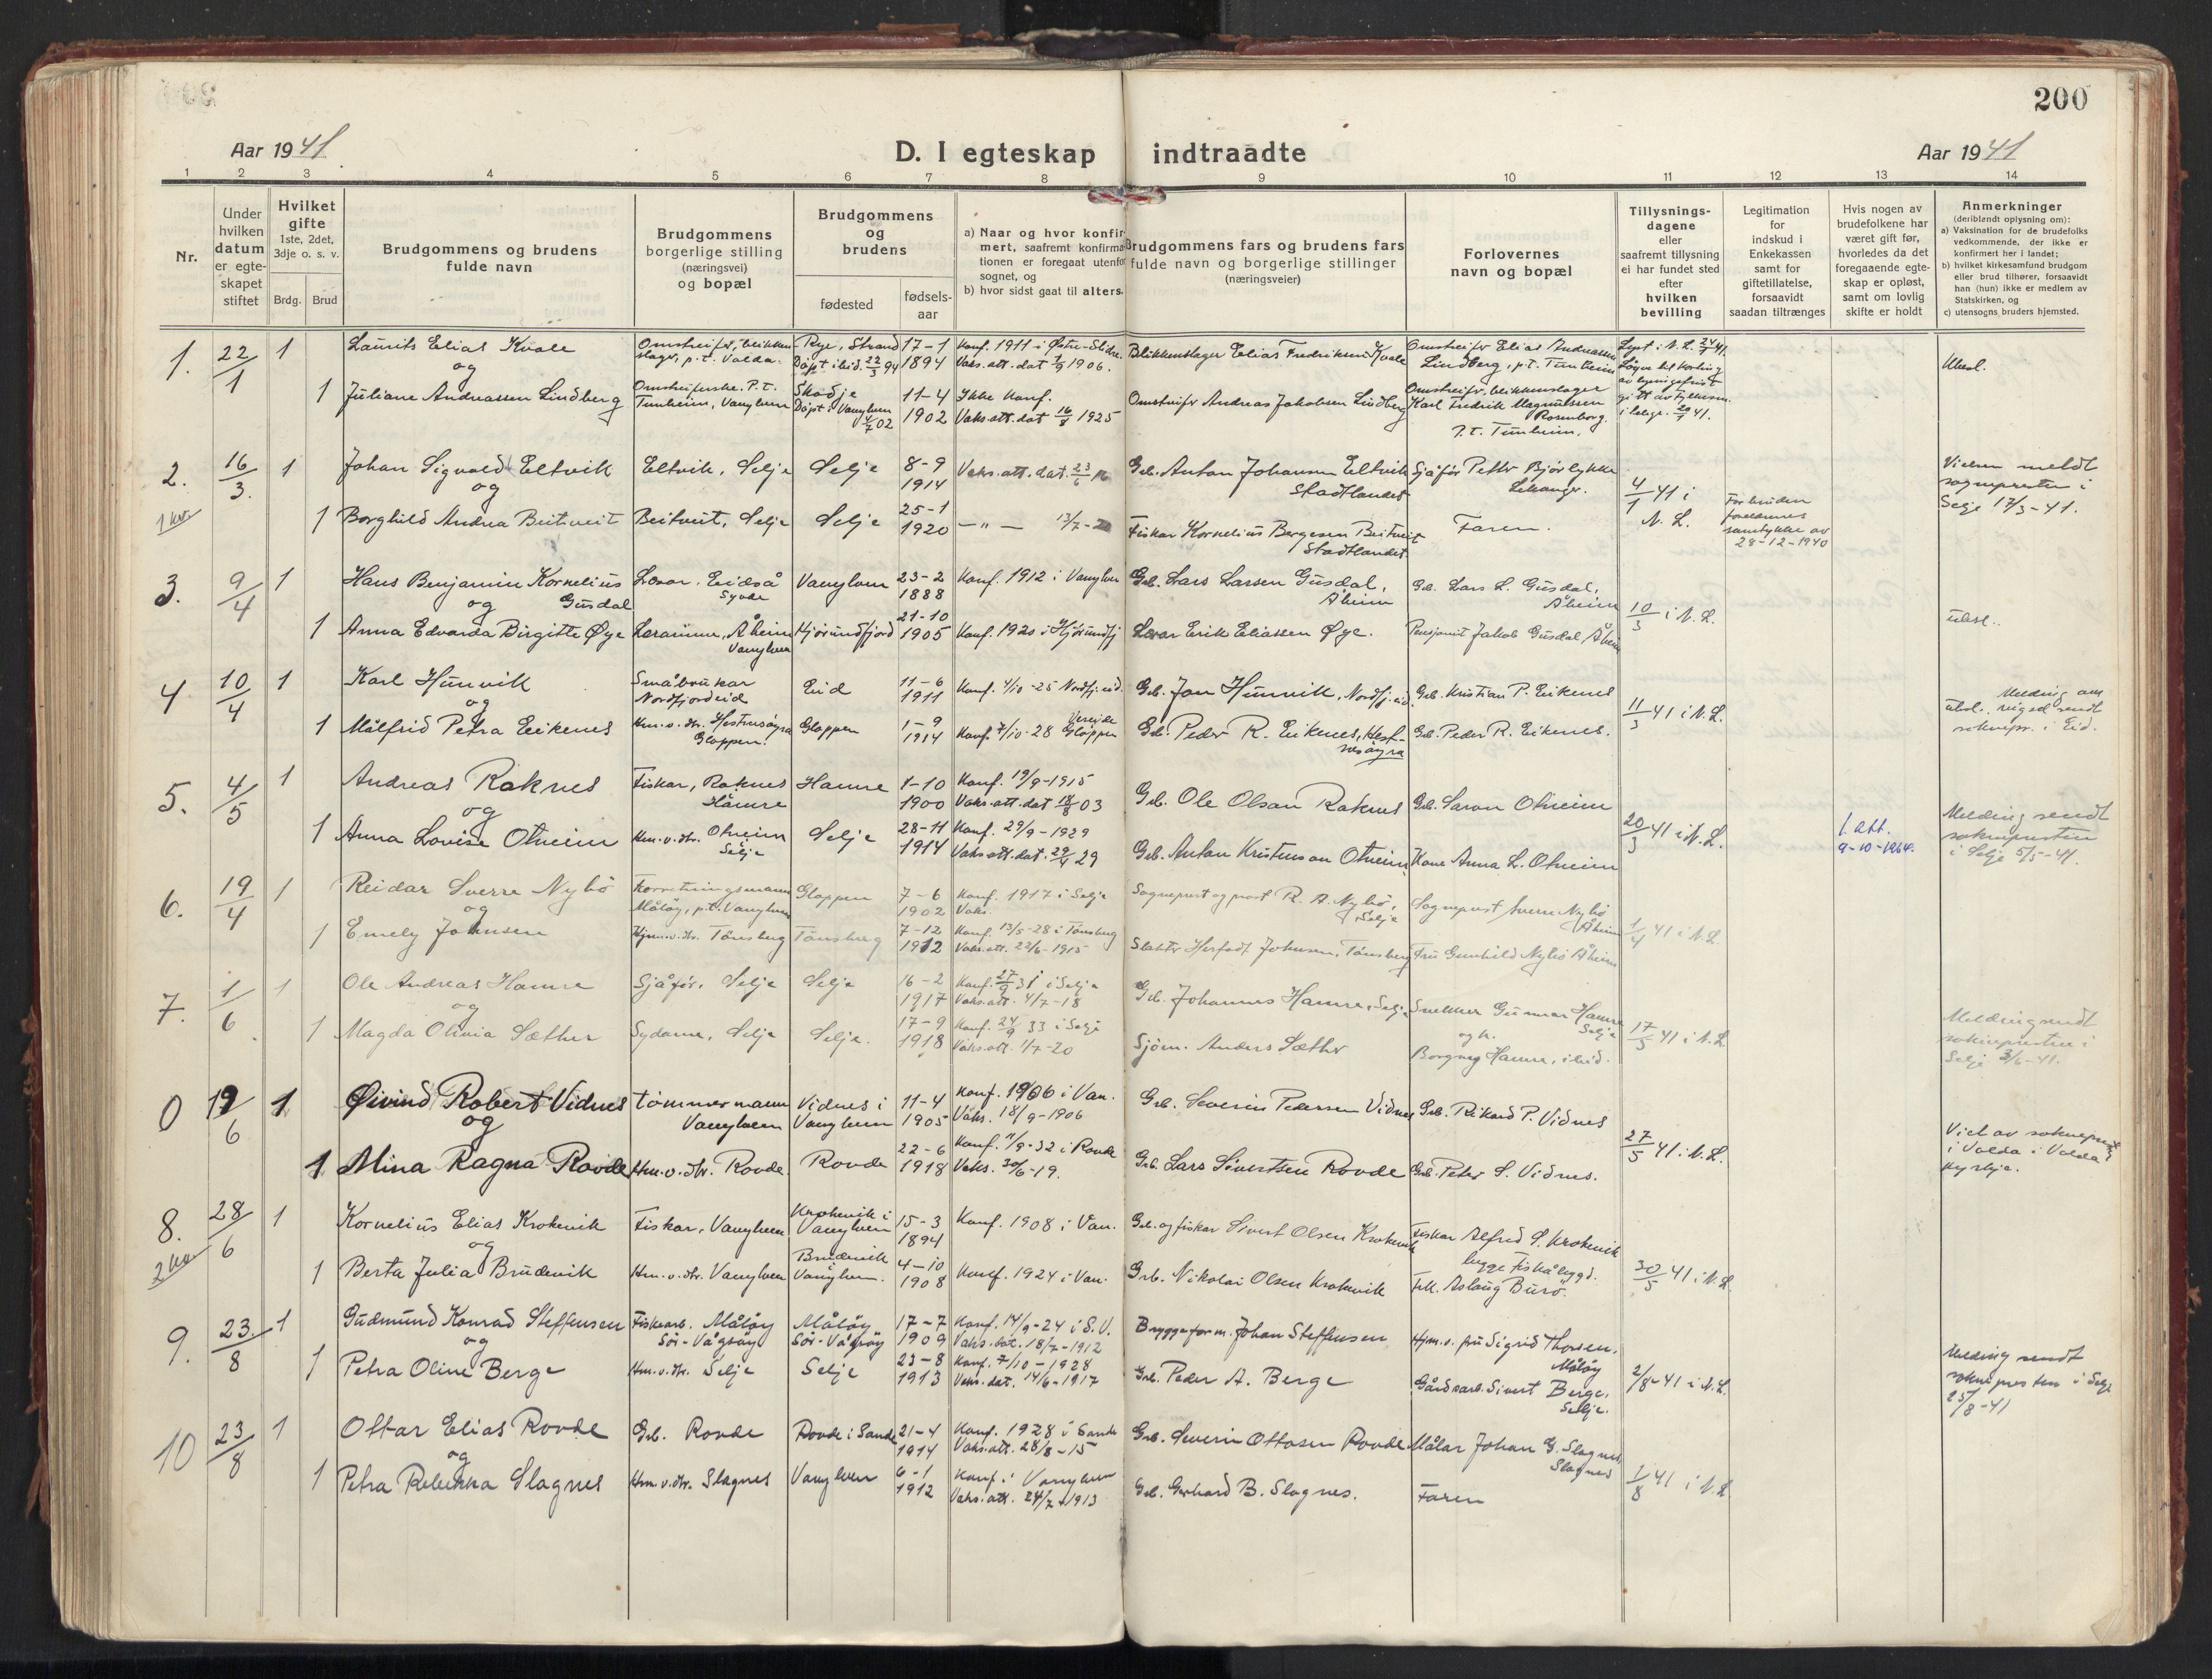 200
Aar 1941
D. I egteskap indtraadte
Aar 1941
1 2 3 4 5 6 7 8 9 10 11 12 13 14
Nr.
Under hvilken datum er egteskapet stiftet
Hvilket gifte 1ste, 2det, 3dje o. s. v.
Brdg. Brud
Brudgommens og brudens fulde navn
Brudgommens borgerlige stilling (næringsvei) og bopæl
Brudgommens og brudens
fødested
fødsels-aar
a) Naar og hvor konfirmert, saafremt konfirmationen er foregaat utenfor sognet, og
b) hvor sidst gaat til alters.
Brudgommens fars og brudens fars fulde navn og borgerlige stillinger (næringsveier)
Forlovernes navn og bopæl
Tillysnings-dagene eller saafremt tillysning ei har fundet sted efter hvilken bevilling
Legitimation for indskud i Enkekassen samt for giftetillatelse, forsaavidt saadan tiltrænges
Hvis nogen av brudefolkene har været gift før, hvorledes da det foregaaende egteskap er opløst, samt om lovlig skifte er holdt
Anmerkninger (deriblandt oplysning om):
a) Vaksination for de brudefolks vedkommende, der ikke er konfirmert her i landet;
b) hvilket kirkesamfund brudgom eller brud tilhører, forsaavidt han (hun) ikke er medlem av Statskirken, og
c) utensogns bruders hjemsted.
1. 22/1 1 Laurits Elias Kvale
og
Omstreifer, blikkenslager, p.t. Volda.
Rye, Strand Døpt ibid. 22/3 94
17-1 1894
Konf. 1911 i Østre-Slidre.
Vaks. att. dat 1/9 1906.
Blikkenslager Elias Fredriksen Kvale
Omstreifer Elias Andreassen Lindberg, p.t. Tunheim
1 Juliane Andreassen Lindberg
Omstreiferske. P.t. Tunheim, Vanylven
Skodje Døpt i Vanylven 6/7 02
11-4 1902
Ikke konf.
Vaks. att. dat 16/8 1925
Omstreifer Andreas Jakobsen Lindberg
Omstreifer, blikkenslager Karl Fredrik Magnussen Rosenborg. P.t. Tunheim.
Utesl.
2. 16/3. 1 Johan Sigvald Eltvik
og
Eltvik, Selje
Selje
8-9 1914
Vaks. att. dat. 23/6 16
Grb. Anton Johansen Eltvik Stadtlandet
Sjåfør Petter Bjørlykke Leikanger.
4/1 41 i N. L.
Vielsen meldt sogneprestn i Selje 17/3-41.
1 kv.
1 Borghild Andrea Beitveit
Beitveit, Selje
Selje
25-1 1920
— " — 13/7-20
Fiskar Kornelius Bergesen Beitveit Stadtlandet
Faren.
For bruden foreldrenes samtykke av 28-12-1940
3. 9/4 1 Hans Benjamin Kornelius Gusdal
og
Lærar, Eidså Syvde
Vanylven
23-2 1888
Konf. 1912 i Vanylven
Grb. Lars Larsen Gusdal, Åheim
Grb. Lars L. Gusdal, Åheim
10/3 i N. L.
utesl.
1 Anna Edvarda Birgitte Øye
Lærarinne, Åheim Vanylven
Hjørundfjord
21-10 1905
Konf. 1920 i Hjørundfj
Lærar Erik Eliassen Øye.
Pensjonist Jakob Gusdal, Åheim
4 10/4 1 Karl Hunvik
og
Småbrukar Nordfjordeid
Eid
11-6 1911
Konf. 4/10-25 Nordfj. eid.
Grb. Jon Hunvik, Nordfj. eid.
Grb. Kristian P. Eikenes
11/3 41 i N. L.
Melding om utsl. vigsel sendt soknepr. i Eid.
1 Målfrid Petra Eikenes
Hm. v. dtr. Hestenesøyra Gloppen.
Gloppen
1-9 1914
Konf. 7/10-28 Vereide Gloppen
Grb. Peder R. Eikenes, Hestnesøyra
Grb. Peder R. Eikenes.
5. 4/5 1 Andreas Raknes
og
Fiskar, Raknes Hamre
Hamre
1-10 1900
Konf. 19/9-1915
Vaks. att. dat 18/8 03
Grb. Ole Olson Raknes
Grb. Saron Otneim
20/3 41 i N. L.
1. att. 9-10-1964.
Melding sendt soknepresten i Selje 5/5-41.
1 Anna Lovise Otneim
Hm. v. dtr. Otneim Selje
Selje
28-11 1914
Konf. 29/9-1929
Vaks att. dat. 29/4 29
Grb. Anton Kristenson Otneim
Kone Anna L. Otneim
6. 19/4 1 Reidar Sverre Nybø
og
Forretningsmann Måløy, p.t. Vanylven
Gloppen
7-6 1902
Konf. 1917 i Selje
Vaks.
Sogneprest og prost R. A. Nybø, Selje
Sogneprest Sverre Nybø Åheim
1/4 41 i N. L.
1 Emely Johnsen
Hjm. v. dtr. Tønsberg
Tønsberg
7-12 1912
Konf. 13/5-28 i Tønsberg
Vaks. att. 22/6-1915
Slakter Herfodt Johnsen, Tønsberg
Fru Gunhild Nybø Åheim
7. 1/6. 1 Ole Andreas Hamre
og
Sjåfør, Selje
Selje
16-2 1917
Konf. 27/9 31 i Selje
Vaks. att. 4/7-18
Grb. Johannes Hamre, Selje
Snekker Gunnar Hamre Selje
og h.
17/5 41 i N. L.
Melding sendt soknepresten i Selje 3/6-41.
1 Magda Olivia Sæther
Sydame, Selje
Selje.
17-9 1918
Konf. 24/9 33 i Selje
Vaks. att. 1/7-20
Sjøm. Anders Sæther
Borgny Hamre, ibid.
0 19/6 1 Øivind Robert Vidnes
og
Tømmermann Vanylven
Vidnes i Vanylven
11-4 1905
Konf. 1906 i Van.
Vaks. 18/9-1906
Grb. Severin Pedersen Vidnes
Grb. Rikard P. Vidnes
27/5 41 i N. L.
Viet av sokneprest i Volda i Volda kyrkje.
1 Mina Ragna Rovde
Hm. v. dtr. Rovde.
Rovde
22-6 1918
Konf. 11/9-32 i Rovde
Vaks. 30/6-19.
Grb. Lars Sivertsen Rovde
Grb. Peter S. Vidnes.
8. 28/6 1 Kornelius Elias Krokevik
og
Fiskar, Vanylven
Krokevik i Vanylven
15-3 1894
Konf. 1908 i Van.
Grb. og fiskar Sivert Olsen Krokevik
Fiskar Alfred S. Krokevik bygge Fiskåbygd.
30/5 41 i N. L.
2 kv.
1 Berta Julia Brudevik
Hm. v. dtr. Vanylven
Brudevik Vanylven.
4-10 1908
Konf. 1924 i Van.
Grb. Nikolai Olsen Krokevik
Frk. Aslaug Burø.
9. 23/8 1 Gudmund Konrad Steffensen
og
Fiskearb. Måløy Sør-Vågsøy
Måløy Sør-Vågsøy
17-7 1909
Konf. 14/9-24 i S. V.
Vaks. dat. 18/7-1912
Bryggeform. Johan Steffensen
Hjm. v. fru Sigrid Thorsen. Måløy
2/8-41 i N. L.
Melding sendt soknepresten i Selje 25/8-41
1 Petra Oline Berge
Hm. v. dtr. Selje
Selje
23-8 1913
Konf. 7/10-1928
Vaks. dat. 14/6-1917
Grb. Peder A. Berge
Gårdsarb. Sivert Berge, Selje.
10 23/8 1 Ottar Elias Rovde
og
Grb. Rovde
Rovde i Sande
21-4 1914
Konf. 1928 i Sande
Vaks. att. 28/8-15
Grb. Severin Ottosen Rovde
Målar Johan G. Slagnes, Slagnes
1/8 41 i N. L.
1 Petra Rebekka Slagnes
Hm. v. dtr. Slagnes
Vanylven
6-1 1912
Konf. i Vanylven
Vaks. att. 24/7-1913
Grb. Gerhard B. Slagnes.
Faren